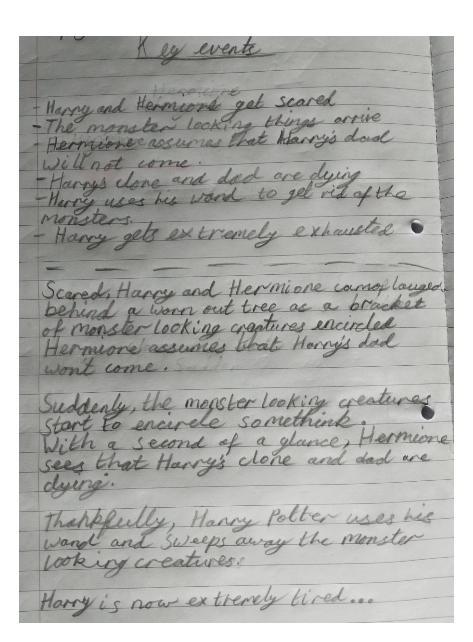 Key events
Hermione
- Harry and Hermione get scared
- The monster looking things arrive
- Hermione assumes that Harry's dad
will not come.
- Harry's clone and dad are dying
- Harry uses his wand to get rid of the
monsters.
- Harry gets extremely exhausted
Scared, Harry and Hermione camoflauged
behind a worn out tree as a bracket
of monster looking creatures encircled
Hermione assumes that Harry's dad
won't come.
Suddenly, the monster looking creatures
start to encircle somethink.
With a second of a glance, Hermione
sees that Harry's clone and dad are
dying.
Thankfully, Harry Potter uses his
wand and sweeps away the monster
looking creatures.
Harry is now extremely tired...